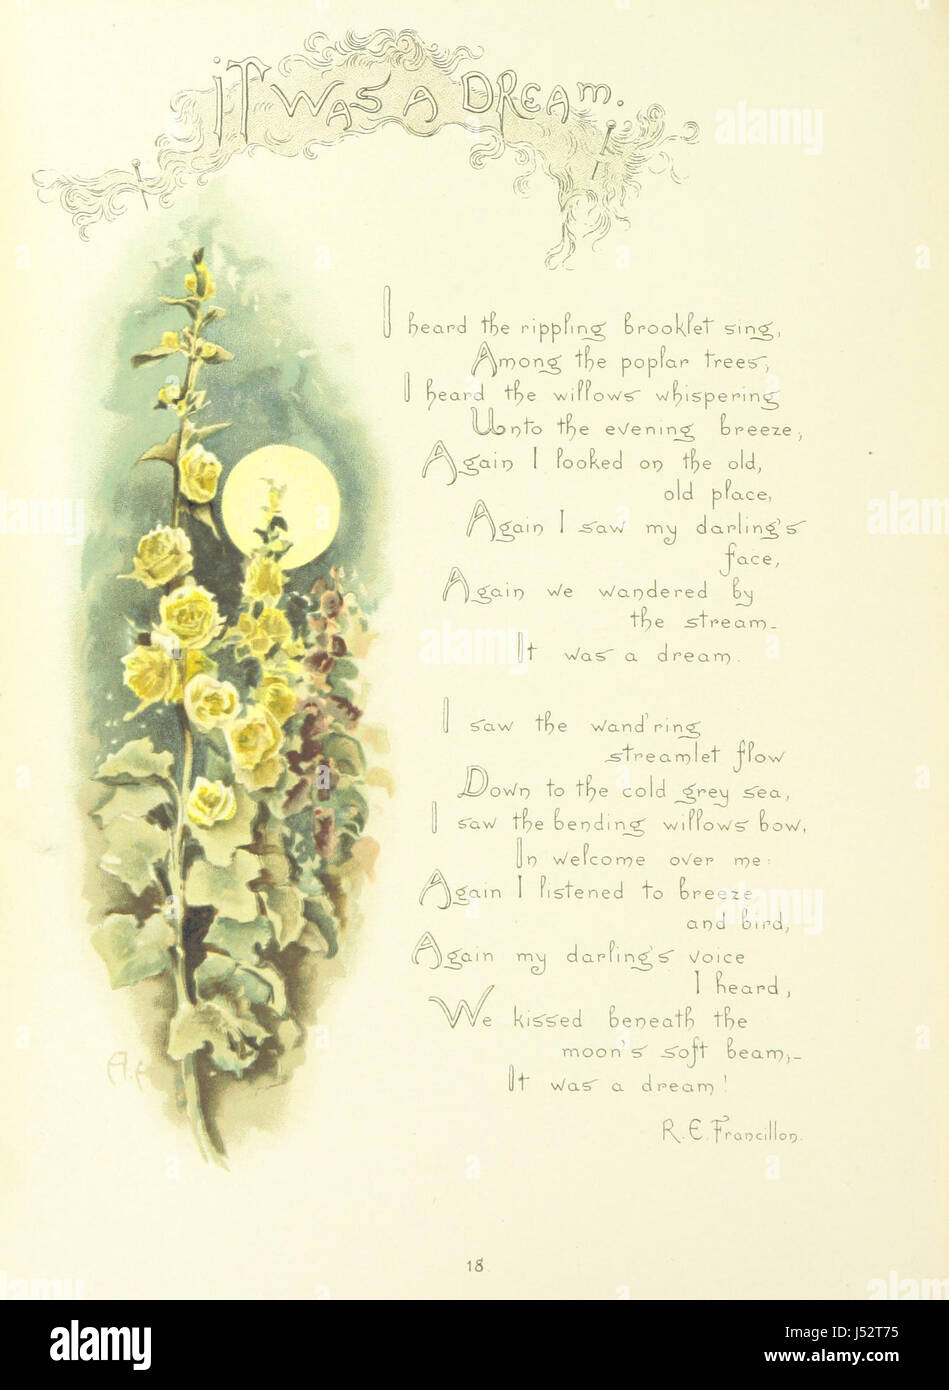 IT WAS A DREAM.
I heard the rippling brooklet sing,
Among the poplar trees,
I heard the willows whispering
Unto the evening breeze,
Again I looked on the old,
old place,
Again I saw my darling's
face,
Again we wandered by
the stream_
It was a dream.
I saw the wand'ring
streamlet flow
Down to the cold grey sea,
I saw the bending willows bow,
In welcome over me:
Again I listened to breeze
and bird,
Again my darling's voice
I heard,
We kissed beneath the
moon's soft beam,_
It was a dream!
R. E. Francillon.
18
alamy
alamy
alamy
alamy
alamy
alamy
alamy
alamy
a
a
a
alamy
Image ID: J52T75
www.alamy.com